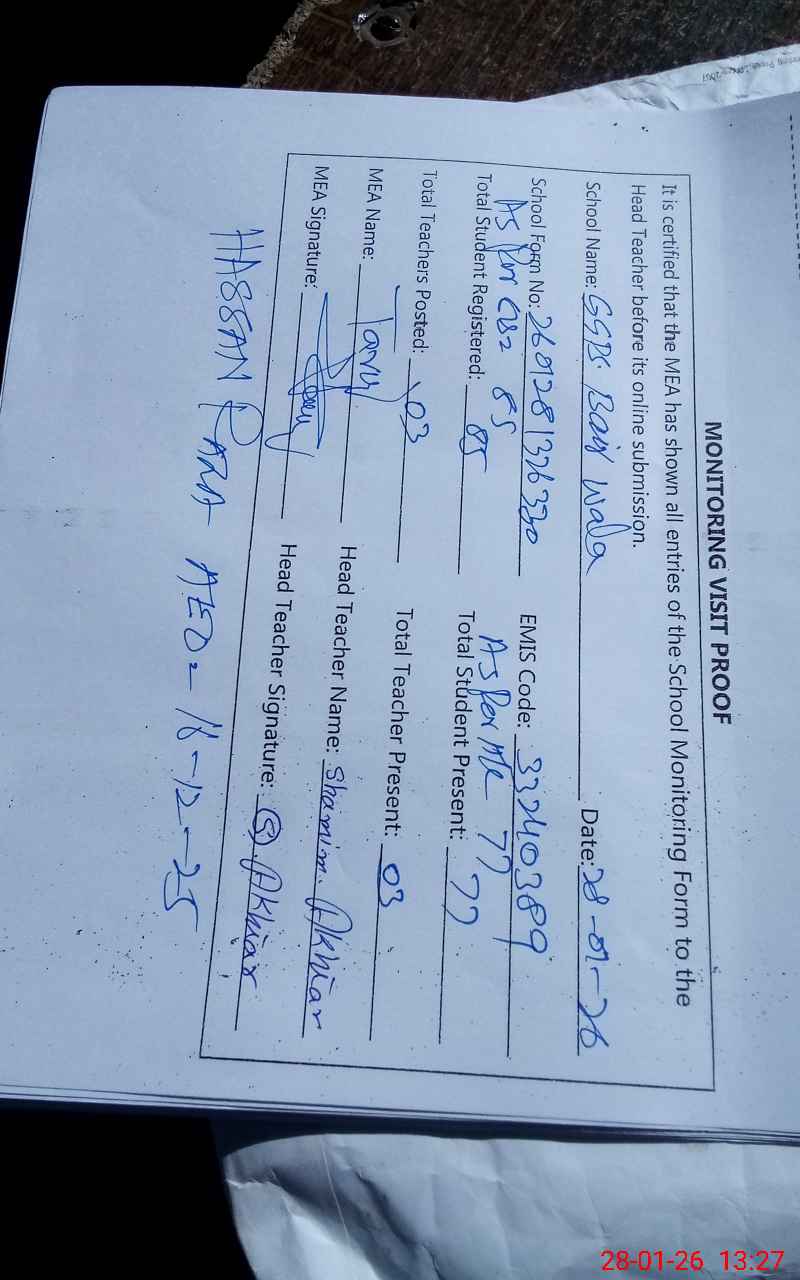 MONITORING VISIT PROOF
It is certified that the MEA has shown all entries of the School Monitoring Form to the
Head Teacher before its online submission.
School Name: GGPS. Bair wala Date: 28-01-26
School Form No: 2601281326330 EMIS Code: 33240389
As Per 85 As Per 77
Total Student Registered: 85 Total Student Present: 77
Total Teachers Posted: 03 Total Teacher Present: 03
MEA Name: Head Teacher Name: Shamim. Akhtar
MEA Signature: Head Teacher Signature: (S). Akhtar
HASSAN RAZA AEO - 16-12-25
28-01-26 13:27